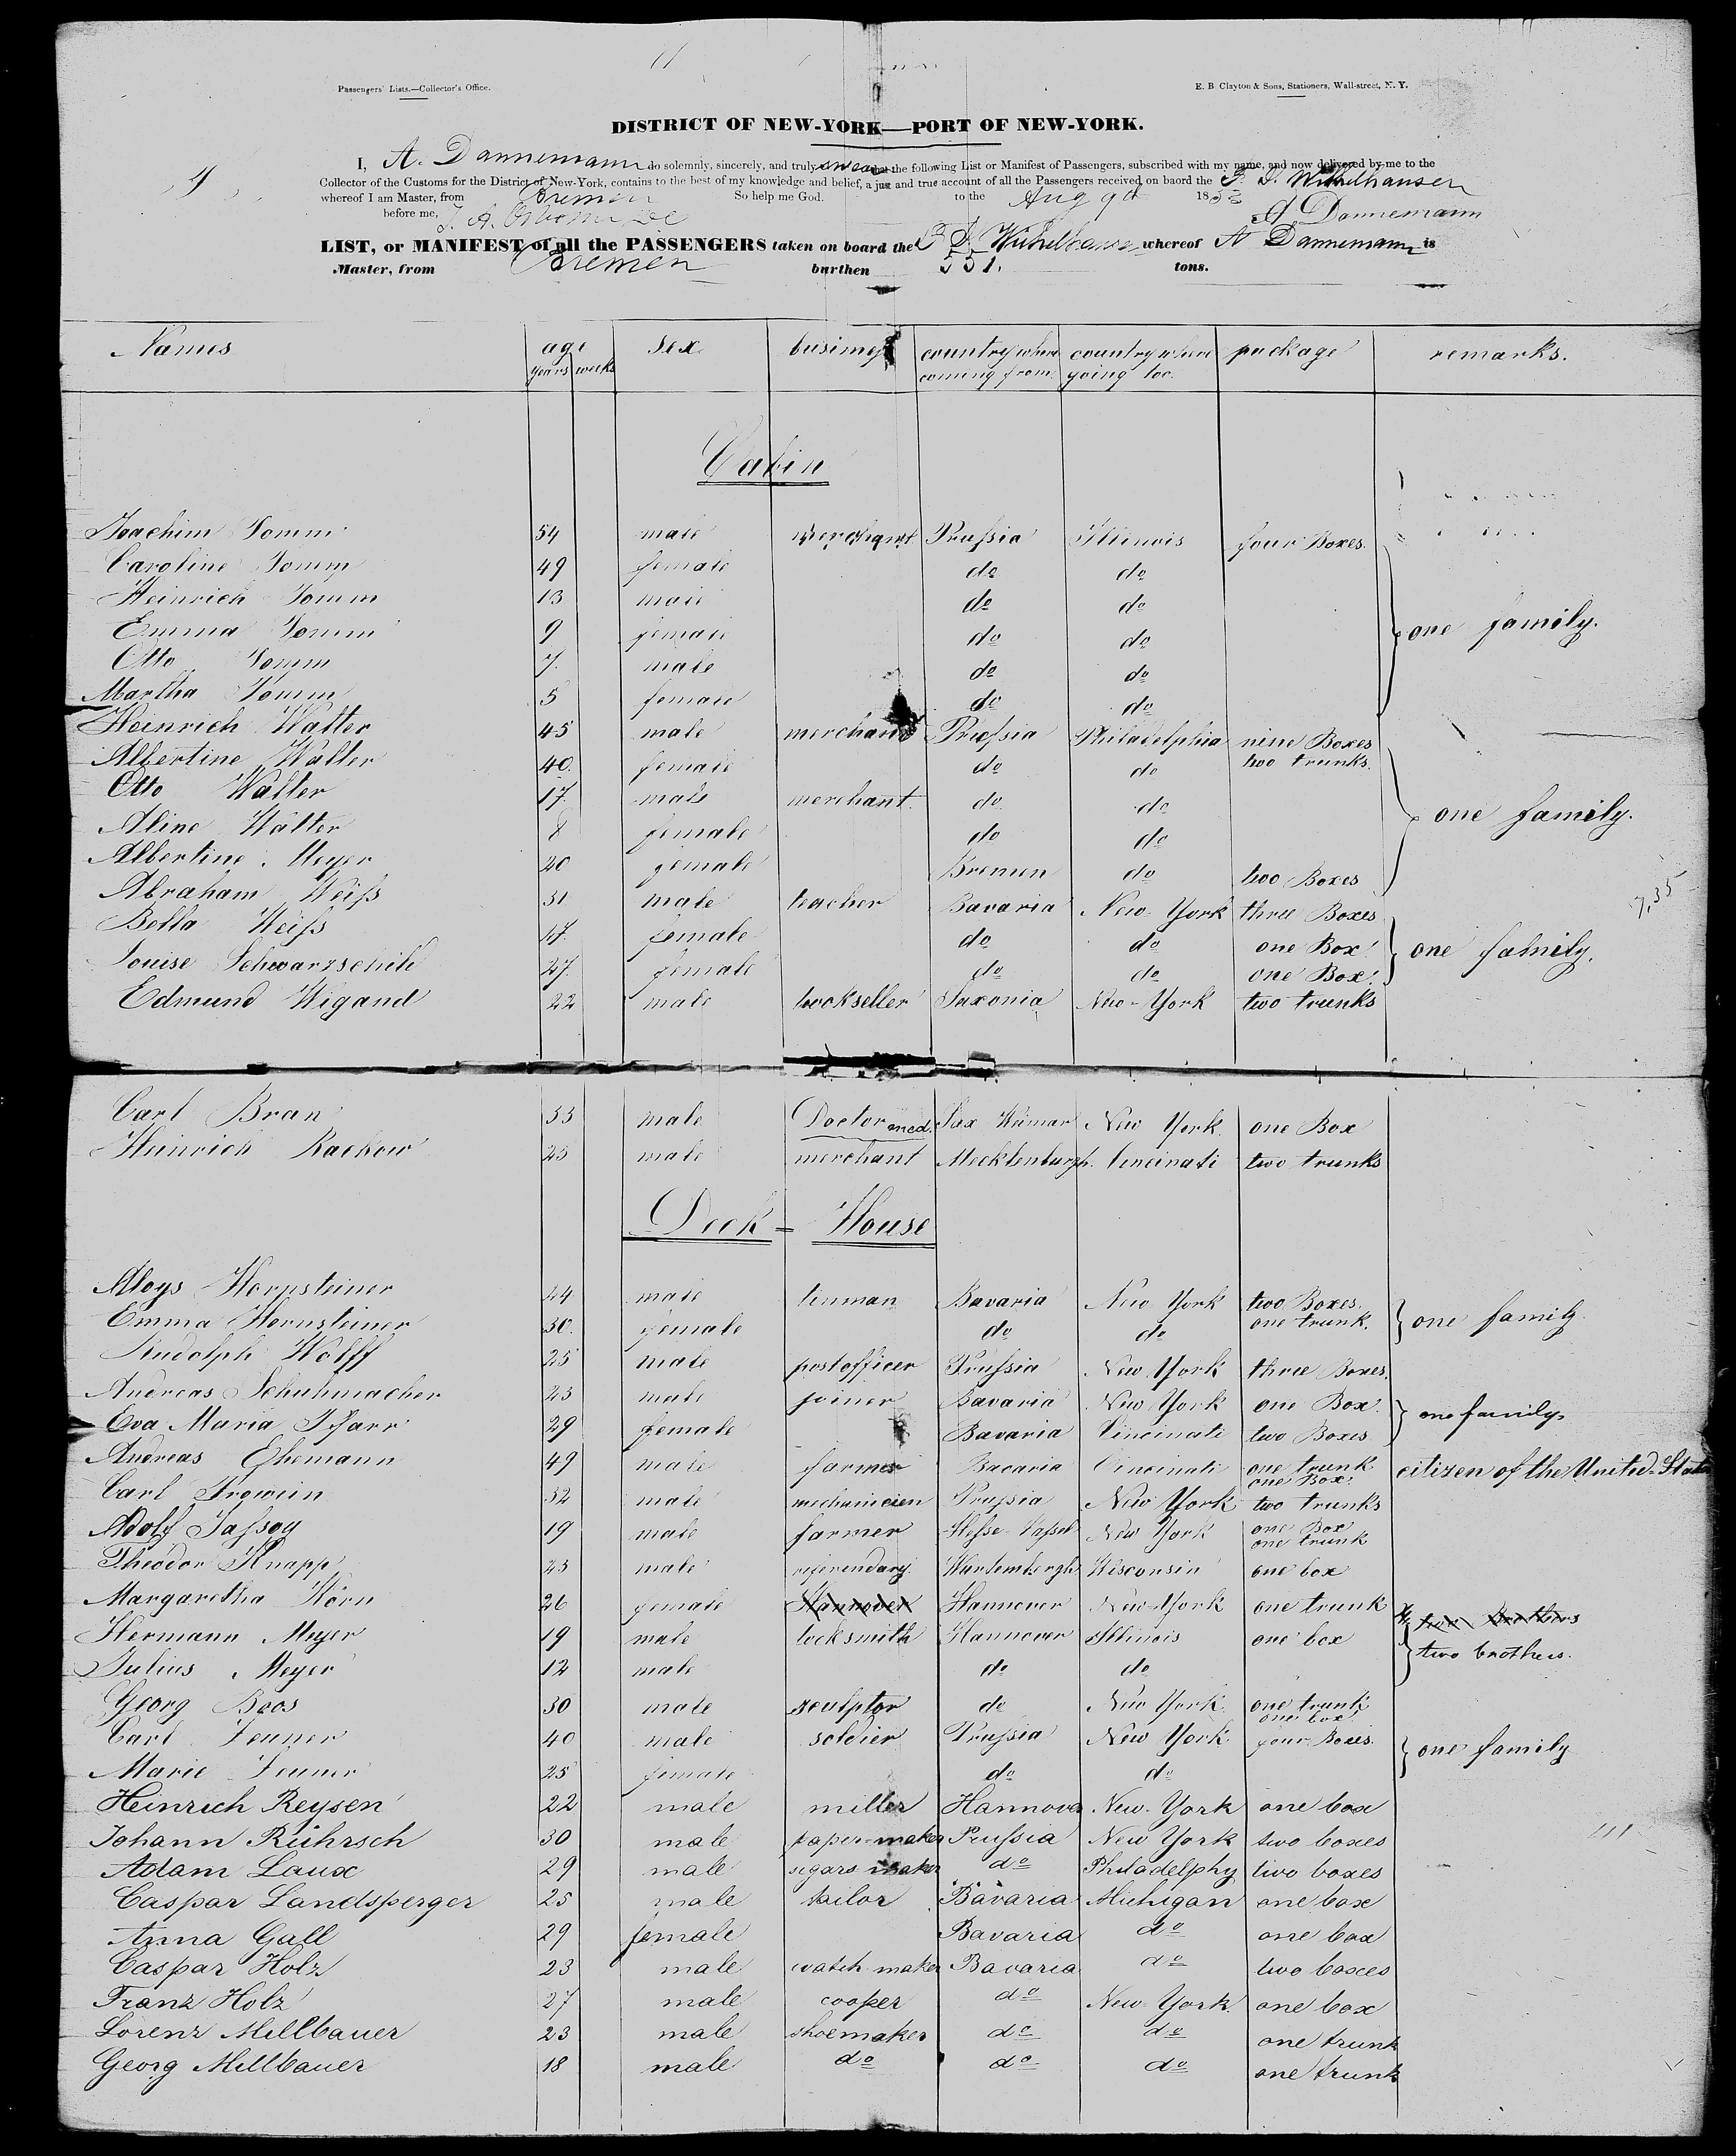 Passengers' Lists.—Collector's Office.
E. B Clayton & Sons, Stationers, Wall-street, N. Y.
DISTRICT OF NEW-YORK—PORT OF NEW-YORK.
I, A. Dannemann do solemnly, sincerely, and truly swear that the following List or Manifest of Passengers, subscribed with my name, and now delivered by me to the
Collector of the Customs for the District of New-York, contains to the best of my knowledge and belief, a just and true account of all the Passengers received on baord the
whereof I am Master, from Bremen So help me God. to the Aug 9th 185
before me, A Dannemann
LIST, or MANIFEST of all the PASSENGERS taken on board the whereof A Dannemann is
Master, from Bremen burthen 551. tons.
Names age years weeks Sex business country where coming from country where going too. package remarks.
Cabin
Joachim Tomm 54 male merchant Prussia Illinois four Boxes.
Caroline Tomm 49 female do do
Heinrich Tomm 13 male do do
Emma Tomm 9 female do do one family.
Otto Tomm 7. male do do
Martha Tomm 5 female do do
Heinrich Walter 45 male merchant Prussia Philadelphia nine Boxes
Albertine Walter 40. female do do two trunks.
Otto Walter 17. male merchant. do do
Aline Walter 8 female do do one family.
Albertine Meyer 20 female Bremen do two Boxes
Abraham Weiss 31 male teacher Bavaria New-York three Boxes
Bella Weiss 17. female do do one Box one family.
Louise Schwarzschild 27. female do do one Box.
Edmund Wigand 22 male bookseller Saxonia New-York two trunks
Carl Bran 33 male Doctor med. Sax Weimar New York. one Box
Heinrich Rackow 23 male merchant Mecklenburgh. Cincinati two trunks
Deck = House
Aloys Hornsteiner 24 male tinman Bavaria New York two Boxes.
Emma Hornsteiner 30. female do do one trunk. one family
Rudolph Wolff 25 male postofficer Prussia New York three Boxes.
Andreas Schuhmacher 23 male joiner Bavaria New York one Box.
Eva Maria Pfarr 29 female Bavaria Cincinati two Boxes one family.
Andreas Ehemann 49 male farmer Bavaria Cincinati one trunk one Box. citizen of the United-State
Carl Frowein 32 male mechanicien Prussia New York two trunks
Adolf Jassoy 19 male farmer Hesse Cassel New York one Box one trunk
Theodor Knapp 23 male referendary. Wurtembergh Wisconsin one box
Margaretha Horn 26 female Hannover Hannover New-York one trunk two Brothers
Hermann Meyer 19 male locksmith Hannover Illinois one box
Julius Meyer 12 male do do two brothers.
Georg Boos 30 male sculptor do New York. one trunk one box
Carl Fenner 40 male soldier Prussia New York. four Boxes.
Marie Fenner 25 female do do one family
Heinrich Reysen 22 male miller Hannover New-York one box
Johann Rührsch 30 male paper-maker Prussia New York two boxes
Adam Laux 29 male segars maker do Philadelphy two boxes
Caspar Landsperger 25 male tailor Bavaria Michigan one box
Anna Gall 29 female Bavaria do one box
Caspar Holz 23 male watch maker Bavaria do two boxes
Franz Holz 27 male cooper do New York. one box
Lorenz Millbauer 23 male shoemaker do do one trunk
Georg Millbauer 18 male do do do one trunk